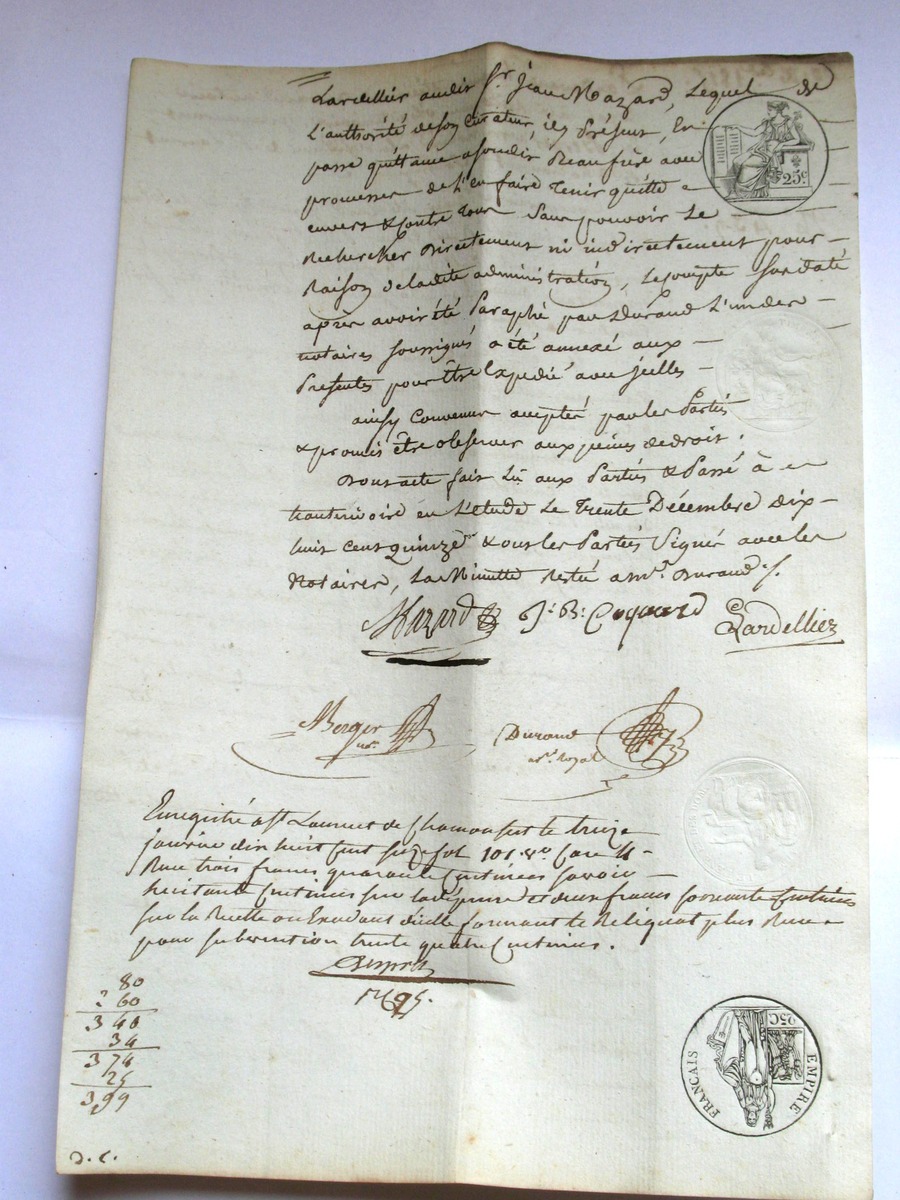 Lardellier audit Sr. Jean Mazard, Lequel de
L'authorité de son Curateur, icy Présent, En
passe quittance a sondit Beaufrère avec
promesse de L'en faire tenir quitte
envers & contre tous Sans pouvoir Le
Rechercher Directement ni indirectement pour
Raison de ladite administration, Le compte Susdaté
après avoir été Paraphé par Durand L'un des
notaires soussignés a été annexé aux
Présentes pour être Expédié avec jcelles
ainsy Convenu accepté par les Parties
& promis être observer aux peines de droit.
Dont acte fait Lû aux Parties & Passé à
en L'étude Le Trente Décembre dix
huit cent Quinze & ont les Parties Signé avec les
Notaires, La Minutte Restée a Mr. Durand /.
Mazard J. B. Coquard Lardellier
Berger nre. Durand nre. Royal
Enregistré a St. Laurent de Chamousset le treize
janvier dix huit cent seize fol 101 vo. Case
Reçu trois francs quarante Centimes savoir
huitante Centimes sur la dépense et deux francs soixante Centimes
sur la Recette ou Excédant d'icelle formant le Reliquat plus Reçu
pour subvention trente quatre Centimes.
80
2 60
3 40
34
3 74
25
3,99
D. C.
25c
EMPIRE FRANCAIS
25C